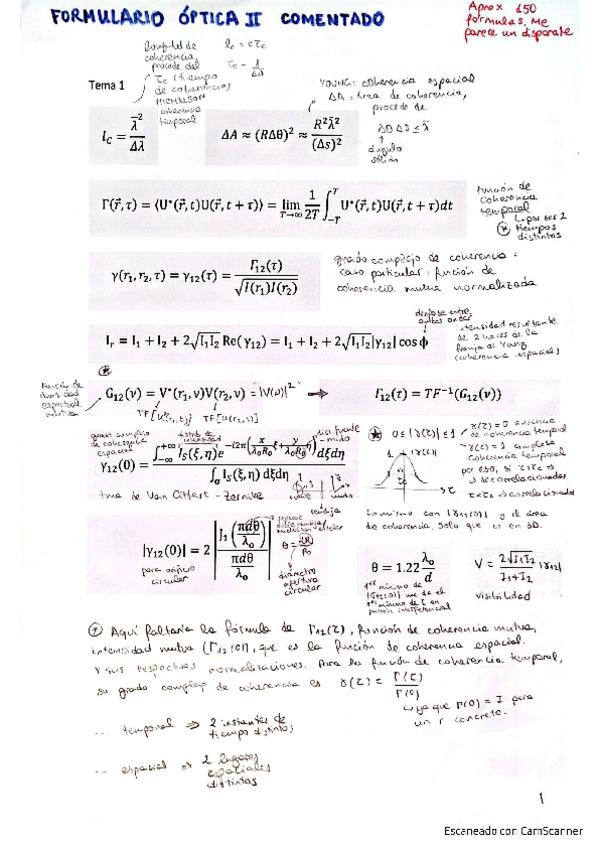 FORMULARIO ÓPTICA II COMENTADO
Aprox 150
fórmulas. Me
parece un disparate
longitud de
coherencia,
procede del
τc (tiempo
de coherencia)
MICHELSON
coherencia
temporal
lc = cτc
τc ~ 1/Δν
Tema 1
YOUNG: coherencia espacial
ΔA = área de coherencia,
procede de
ΔθΔs ≤ λ̄
ángulo
sólido
l_C = λ̄²/Δλ
ΔA ≈ (RΔθ)² ≈ R²λ̄²/(Δs)²
Γ(r⃗,τ) = ⟨U*(r⃗,t)U(r⃗,t+τ)⟩ = lim_{T→∞} 1/2T ∫_{-T}^{T} U*(r⃗,t)U(r⃗,t+τ)dt
función de
coherencia
temporal
↳ por ser 2
tiempos
distintos
γ(r₁,r₂,τ) = γ₁₂(τ) = Γ₁₂(τ)/√(I(r₁)I(r₂))
grado complejo de coherencia:
caso particular: función de
coherencia mutua normalizada
desfase entre
ambas ondas
I_r = I₁ + I₂ + 2√(I₁I₂) Re(γ₁₂) = I₁ + I₂ + 2√(I₁I₂)|γ₁₂| cos ϕ
intensidad resultante
de 2 haces de la
franja de Young
(coherencia espacial)
Función de
densidad
espectral
mutua
G₁₂(ν) = V*(r₁,ν)V(r₂,ν) = |V(ν)|² → Γ₁₂(τ) = TF⁻¹(G₁₂(ν))
TF[U(r₂,t)]
grado complejo
de coherencia
espacial
γ₁₂(0) = ∫_{-∞}^{+∞} I_S(ξ,η)e^{-i2π(x/λ₀R₀ ξ + y/λ₀R₀ η)}dξdη / ∫_σ I_S(ξ,η) dξdη
tma de Van Cittert - Zernike
0 ≤ |γ(τ)| ≤ 1
γ(τ) = 0 ausencia
de coherencia temporal
γ(τ) = 1 completa
coherencia temporal
por eso, si τ>τc ⇒
⇒ decorrelacionadas
τ<τc ⇒ correlacionadas
1 |γ(τ)|
τ
Lo mismo con |γ₁₂(0)| y el área
de coherencia, solo que es en 3D.
|γ₁₂(0)| = 2 |J₁(πdθ/λ₀) / (πdθ/λ₀)|
para orificio
circular
diámetro
apertura
circular
θ = 1.22 λ₀/d
V = 2√(I₁I₂)/(I₁+I₂) |γ₁₂|
visibilidad
Aquí faltaría la fórmula de Γ₁₂(τ), función de coherencia mutua,
intensidad mutua (Γ₁₂(0)), que es la función de coherencia espacial.
Y sus respectivas normalizaciones. Para la función de coherencia temporal,
su grado complejo de coherencia es γ(τ) = Γ(τ)/Γ(0)
↳ ya que Γ(0) = I para
un r concreto.
... temporal ⇒ 2 instantes de
tiempo distintos
... espacial ⇒ 2 lugares
espaciales
distintos
1
Escaneado con CamScanner